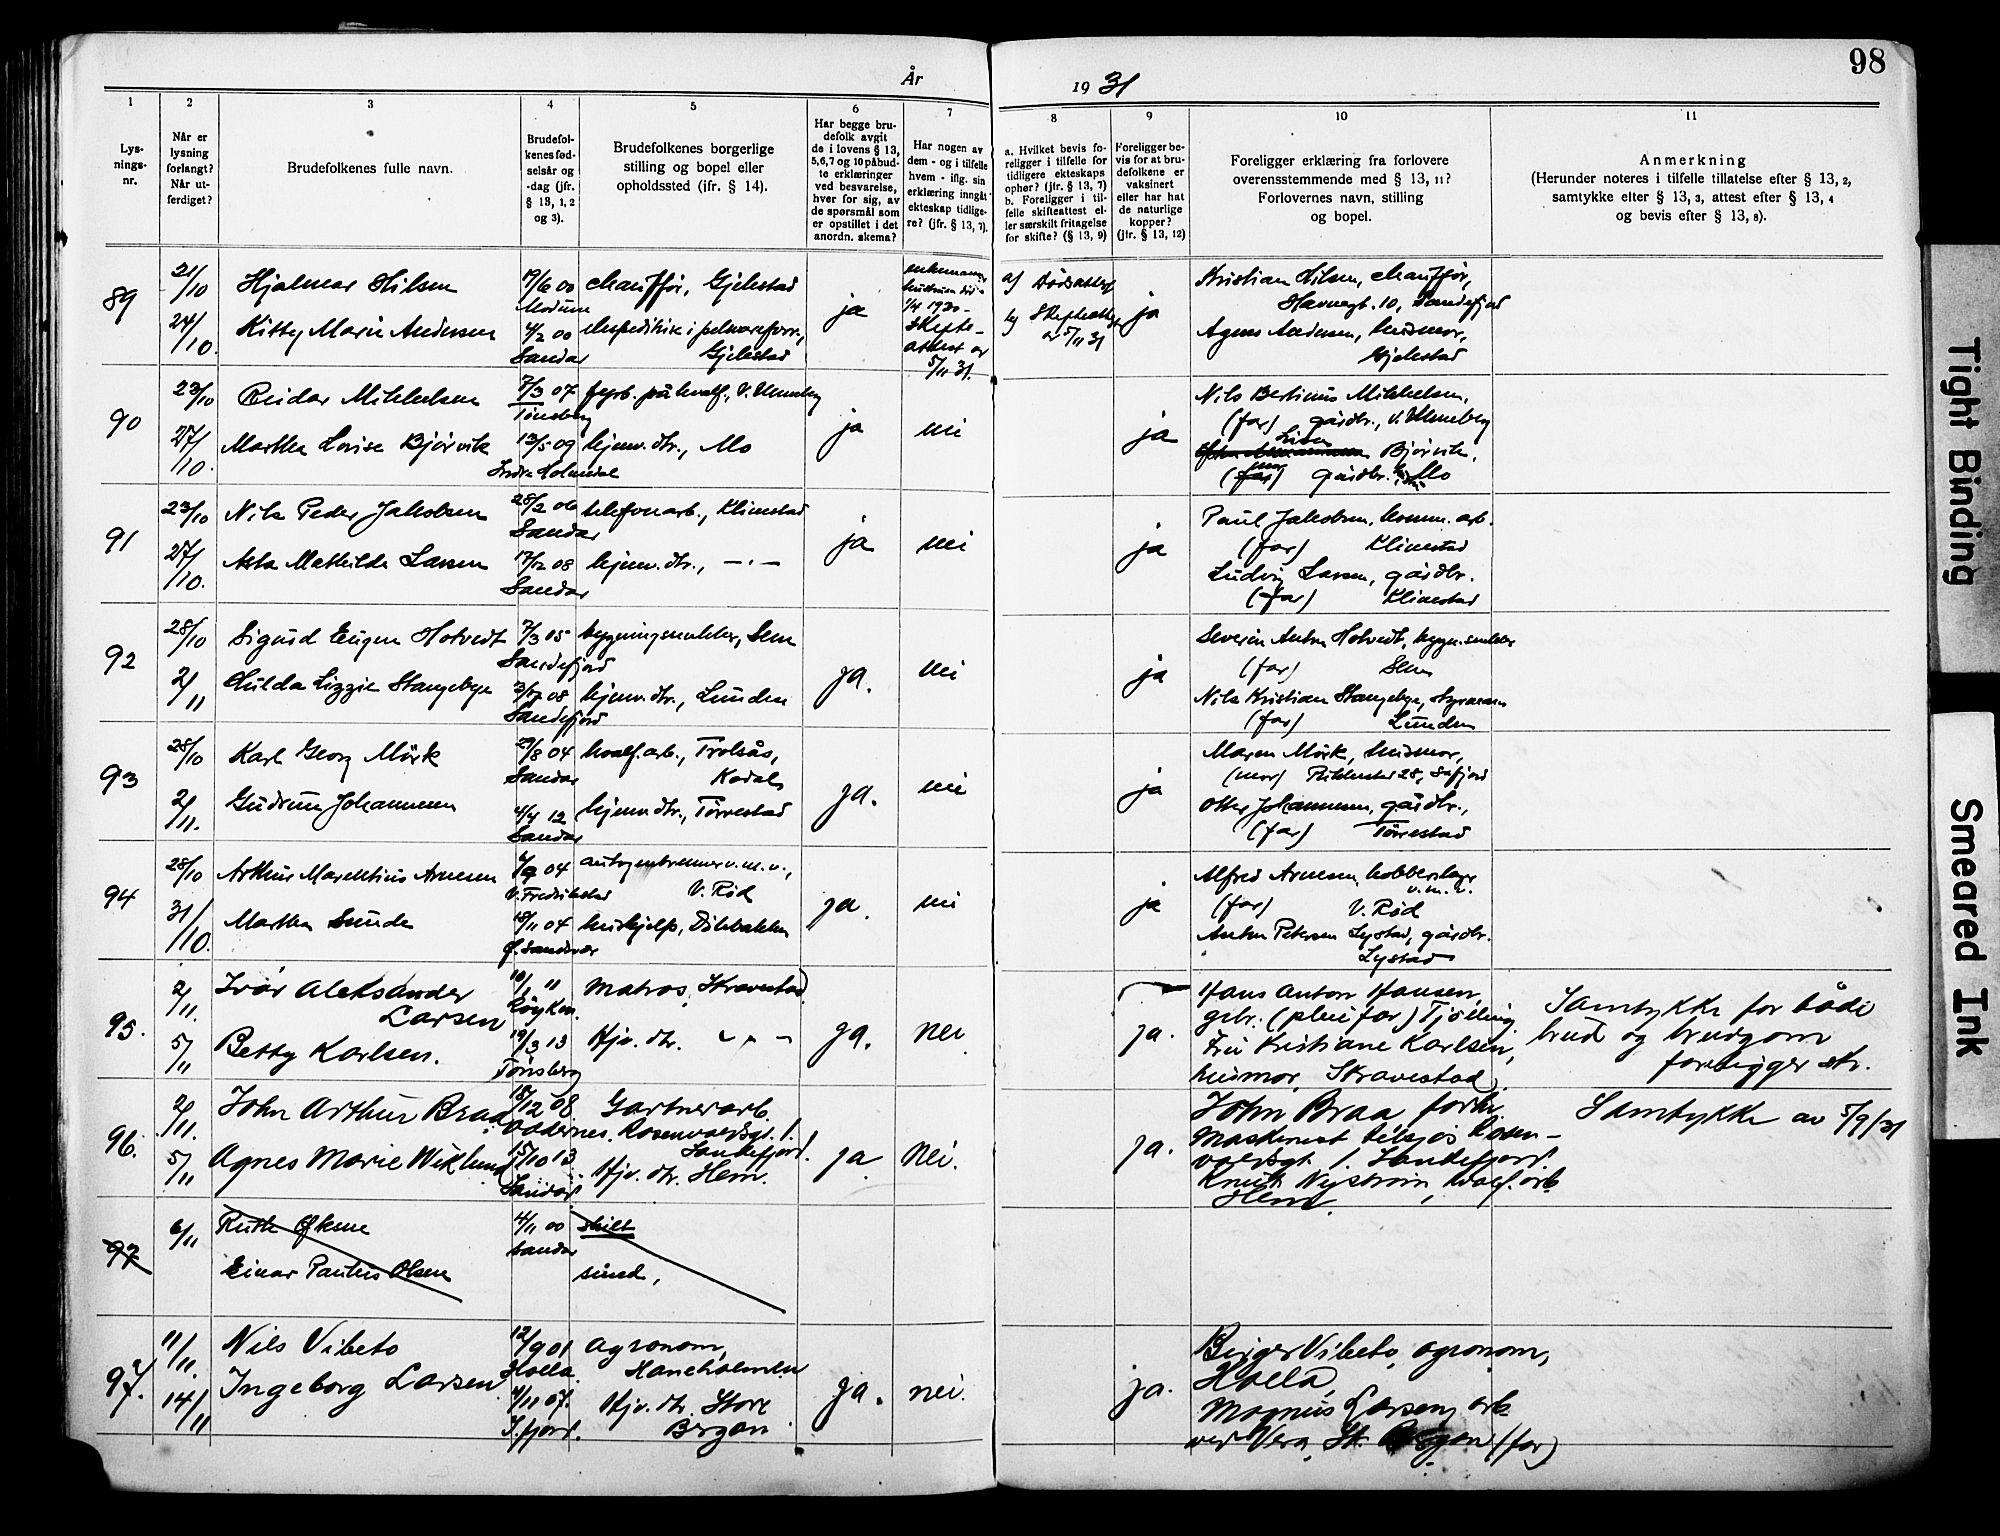 98
År
19 31
1
2
3
4
5
6
7
8
9
10
11
Lys-
nings-
nr.
Når er
lysning
forlangt?
Når ut-
ferdiget?
Brudefolkenes fulle navn.
Brudefol-
kenes fød-
selsår og
-dag (jfr.
§ 13, 1, 2
og 3).
Brudefolkenes borgerlige
stilling og bopel eller
opholdssted (ifr. § 14).
Har begge bru-
defolk avgit
de i lovens § 13,
5,6,7 og 10 påbud-
te erklæringer
ved besvarelse,
hver for sig, av
de spørsmål som
er opstillet i det
anordn. skema?
Har nogen av
dem - og i tilfelle
hvem - iflg. sin
erklæring inngåt
ekteskap tidlige-
re? (jfr. § 13, 7).
a. Hvilket bevis fo-
religger i tilfelle for
tidligere ekteskaps
ophør? (jfr. § 13, 7)
b. Foreligger i til-
felle skifteattest el-
ler særskilt fritagelse
for skifte? (§ 13, 9)
Foreligger be-
vis for at bru-
defolkene er
vaksinert
eller har hat
de naturlige
kopper?
(jfr. § 13, 12)
Foreligger erklæring fra forlovere
overensstemmende med § 13, 11?
Forlovernes navn, stilling
og bopel.
Anmerkning
(Herunder noteres i tilfelle tillatelse efter § 13, 2,
samtykke efter § 13, 3, attest efter § 13, 4
og bevis efter § 13, 8).
89
21/10
24/10.
Hjalmar Nilsen
Kitty Marie Andersen
19/6 00
Modum
4/2 00
Sandar
chauffør, Gjekstad
ekspeditrise i
Gjekstad
ja
enkemann
1/4 1930 -
Skifte-
attest av
5/11 31.
a) Dødsattest
b) Skifteattest
av 5/11 31
ja
Kristian Nilsen, chauffør,
Havnegt. 10, Sandefjord
Agnes Andersen, husmor,
Gjekstad
90
23/10
27/10.
Reidar Mikkelsen
Martha Lovise Bjørvik
7/3 07
Tønsberg
13/5 09
fyrb. på hvalf., V. Unneberg
hjemv. dtr., Mo
ja
nei
ja
Nils Bertinus Mikkelsen,
(far) gårdbr., V. Unneberg
Bjørvik,
(far) gårdbr. Mo
91
23/10
27/10.
Nils Peder Jakobsen
Asta Mathilde Larsen
28/2 06
Sandar
17/12 08
Sandar
telefonarb., Klinestad
hjemv. dtr., - . -
ja
nei
ja
Paul Jakobsen, komm. arb.
(far) Klinestad
Ludvig Larsen, gårdbr.
(far) Klinestad
92
28/10
2/11
Sigurd Eugen Hotvedt
Hulda Lizzie Stangebye
7/3 05
Sandefjord
3/12 08
Sandefjord
bygningssnekker, Sem
hjemv. dtr., Lunden
ja.
nei
ja
Severin Anton Hotvedt, bygn.snekker
(far) Sem
Nils Kristian Stangebye, styrmann
(far) Lunden
93
28/10
2/11.
Karl Georg Mørk
Gudrun Johannessen
29/8 04
Sandar
4/4 12
Sandar
hvalf. arb., Trolsås,
Kodal
hjemv. dtr., Tørrestad
ja.
nei
ja
Maren Mørk, husmor,
(mor)
Otter Johannessen, gårdbr.,
(far) Tørrestad
94
28/10
31/10.
Arthur Marentius Arnesen
Martha Sunde
04
V. Fredrikstad
18/11 04
Ø. Sandsvær
autogenbrenner v. m. v.,
V. Rød
hushjelp, Dølebakken
ja.
nei
ja
Alfred Arnesen, kobberslager
v. m. v.
(far) V. Rød
Anton Petersen Lystad, gårdbr.
Lystad
95.
2/11
5/11
Ivar Aleksander
Larsen
Betty Karlsen.
10/1 11
Røyken.
19/3 13
Tønsberg
Matros, Skravestad
Hjv. dtr.
ja.
nei
ja.
Hans Anton Hansen,
gbr. (pleiefar) Tjølling.
Fru Kristiane Karlsen,
husmor, Skravestad.
Samtykke for både
brud og brudgom
foreligger skr.
96.
2/11.
5/11
John Arthur Braa
Agnes Marie Wiklund
18/12 08.
15/10 13
Sandar.
Gartnerarb.
Rosenvoldsgt. 1.
Sandefjord.
Hjv. dtr. Hem.
ja
Nei.
ja.
John Braa forhv.
Maskinest tilsjøs Rosen-
voldsgt 1. Sandefjord.
Knut Nystrøm, hvalf. arb.
Hem.
Samtykke av 5/9/31
97
6/11
Ruth Økne
Einar Paulus Olsen
4/11 00
Sandar
skilt
97.
11/11
14/11
Nils Vibeto
Ingeborg Larsen
12/9 01
Holla.
4/11 07.
S.fjord.
Agronom,
Haneholmen
Hjv. dtr. Store
Bergan
ja.
nei.
ja.
Birger Vibeto, agronom,
Holla,
Magnus Larsen, arb.
ved Vera, St. Bergan (far)
Tight Binding
Smeared Ink